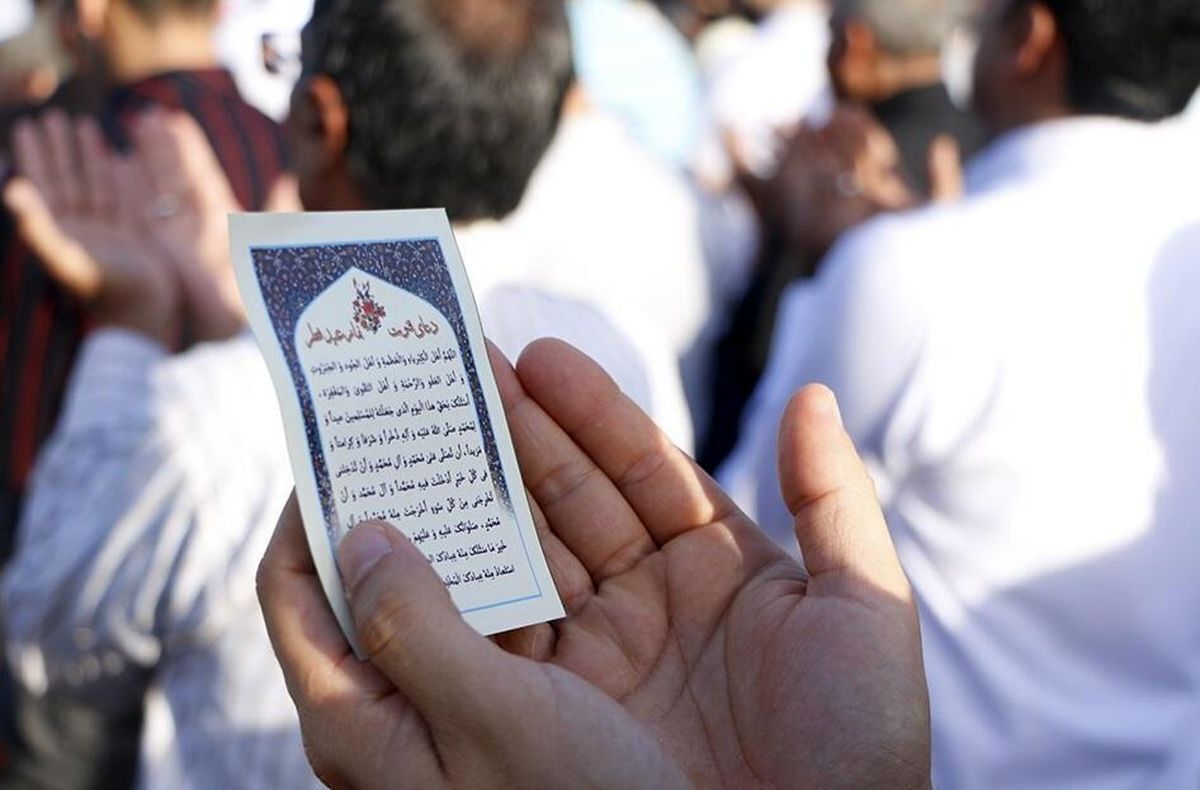 دعای قنوت نماز عید فطر
اللهم أهل الکبریاء والعظمة و أهل الجود و الجبروت
و أهل العفو والرحمة و أهل التقوی والمغفرة،
أسئلک بحق هذا الیوم الذی جعلته للمسلمین عیداً و
لمحمد صلی الله علیه و آله ذخراً و شرفاً و کرامتاً و
مزیداً، أن تصلی علی محمد و آل محمد و أن تدخلنی
فی کل خیر أدخلت فیه محمداً و آل محمد و أن
تخرجنی من کل سوء أخرجت منه محمداً و آل
محمد، صلواتک علیه و علیهم
خیر ما سئلک منه عبادک
استعاذ منه عبادک